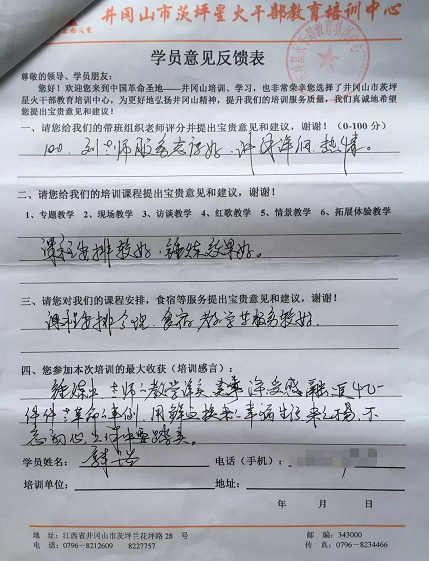 井冈山市茨坪星火干部教育培训中心
学员意见反馈表
尊敬的领导、学员朋友:
您好!欢迎您来到中国革命圣地——井冈山培训、学习,也非常荣幸您选择了井冈山市茨坪
星火干部教育培训中心,为更好地弘扬井冈山精神,提升我们的培训服务质量,我们真诚地希望
您提出宝贵意见和建议。
一、请您给我们的带班组织老师评分并提出宝贵意见和建议,谢谢!(0-100分)
100、刘老师服务态度好、讲解详细、热情。
二、请您给我们的培训课程提出宝贵意见和建议,谢谢!
1、专题教学 2、现场教学 3、访谈教学 4、红歌教学 5、情景教学 6、拓展体验教学
课程安排较好,锤炼效果好。
三、请您对我们的课程安排,食宿等服务提出宝贵意见和建议,谢谢!
课程安排合理,食宿、教学等服务较好。
四、您参加本次培训的最大收获(培训感言):
老师教学 深受感
件件革命事例,用 换来幸福生活来之不易,不
忘初心
学员姓名:
电话(手机):
培训单位:
地址:
年 月 日
地 址:江西省井冈山市茨坪兰花坪路28号 邮 编:343000
电 话:0796-8212609 8227757 传 真:0796-8234466